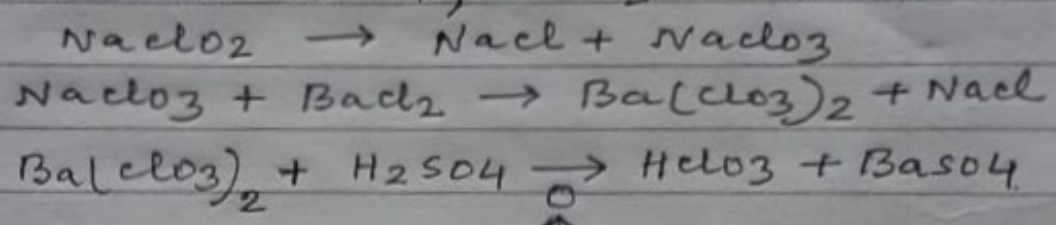 NaClO2 → NaCl + NaClO3
NaClO3 + BaCl2 → Ba(ClO3)2 + NaCl
Ba(ClO3)2 + H2SO4 → HClO3 + BaSO4